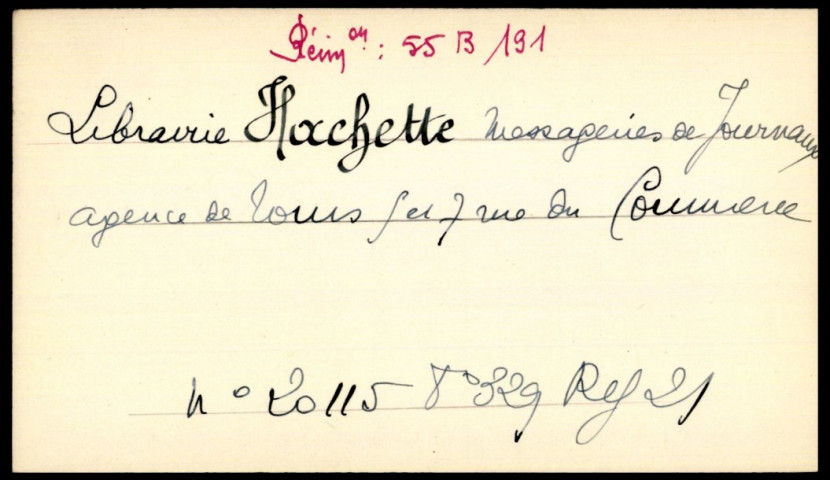 Réim^on : 55 B 191
Librairie Hachette Messageries de Journaux
agence de Tours 5 et 7 rue du Commerce
n° 20115 F° 329 Reg 21